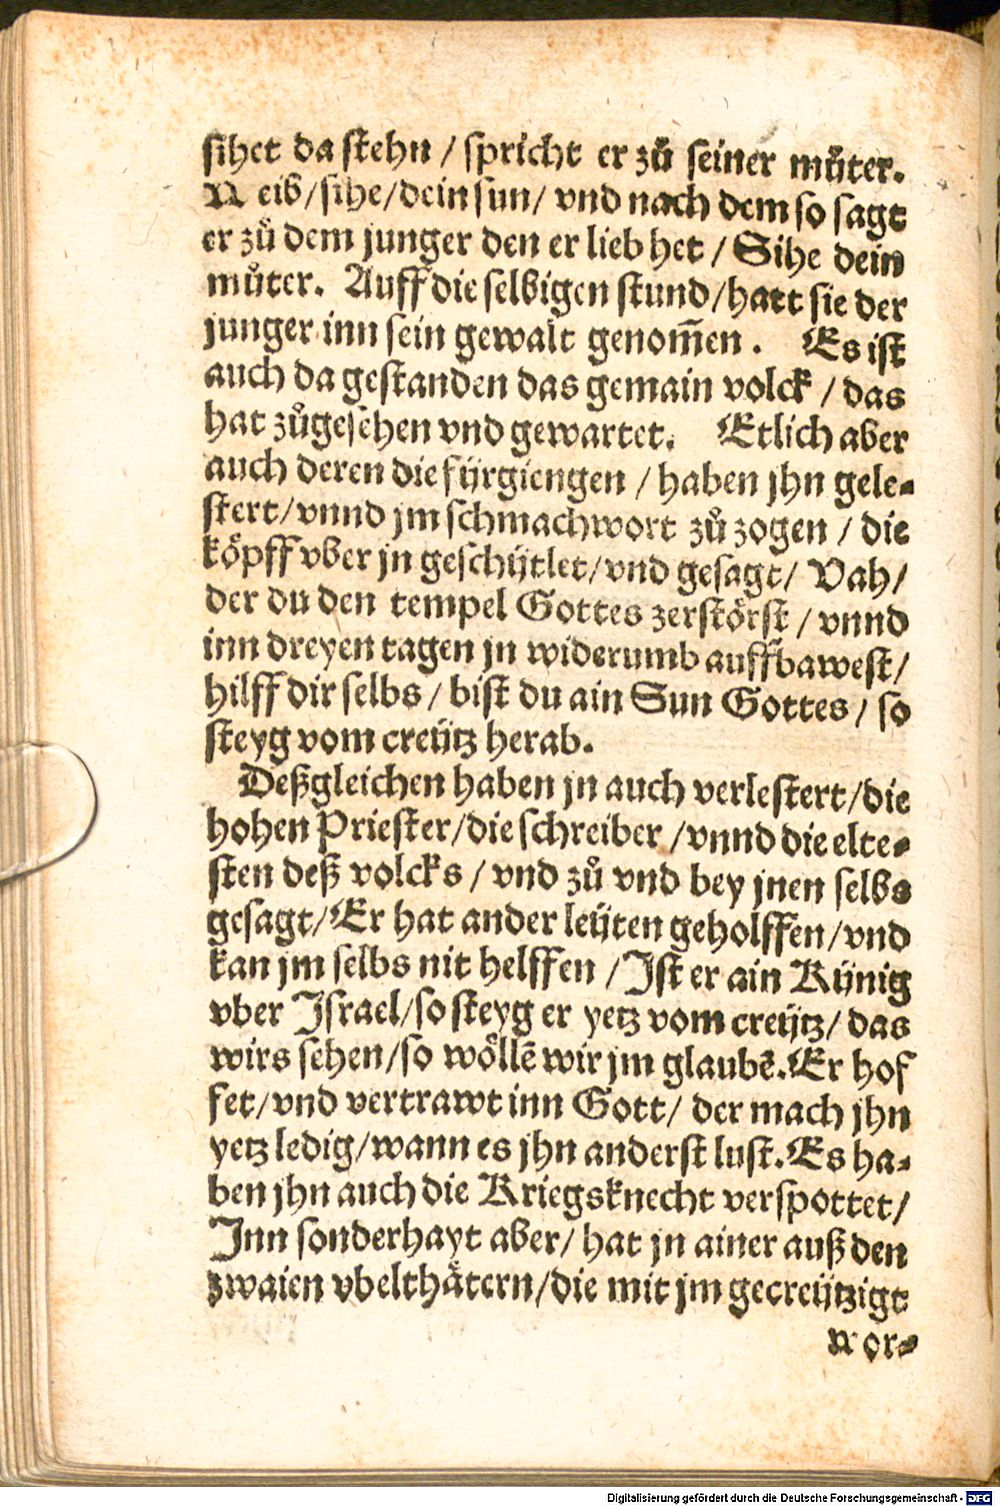 sihet da stehn / spricht er zů seiner můter.
Weib / sihe / dein sun / vnd nach dem so sagt
er zů dem junger den er lieb het / Sihe dein
můter. Auff die selbigen stund / hatt sie der
junger inn sein gewalt genom̄en. Es ist
auch da gestanden das gemain volck / das
hat zůgesehen vnd gewartet. Etlich aber
auch deren die fürgiengen / haben jhn gele-
stert / vnnd jm schmachwort zů zogen / die
köpff vber jn geschütlet / vnd gesagt / Vah /
der du den tempel Gottes zerstörst / vnnd
inn dreyen tagen jn widerumb auffbawest /
hilff dir selbs / bist du ain Sun Gottes / so
steyg vom creütz herab.
Deßgleichen haben jn auch verlestert / die
hohen Priester / die schreiber / vnnd die elte-
sten deß volcks / vnd zů vnd bey jnen selbs
gesagt / Er hat ander leüten geholffen / vnd
kan jm selbs nit helffen / Ist er ain Künig
vber Israel / so steyg er yetz vom creütz / das
wirs sehen / so wöllē wir jm glaubē. Er hof
fet / vnd vertrawt inn Gott / der mach jhn
yetz ledig / wann es jhn anderst lust. Es ha-
ben jhn auch die Kriegsknecht verspottet /
Inn sonderhayt aber / hat jn ainer auß den
zwaien vbelthätern / die mit jm gecreützigt
wor-
Digitalisierung gefördert durch die Deutsche Forschungsgemeinschaft - DFG